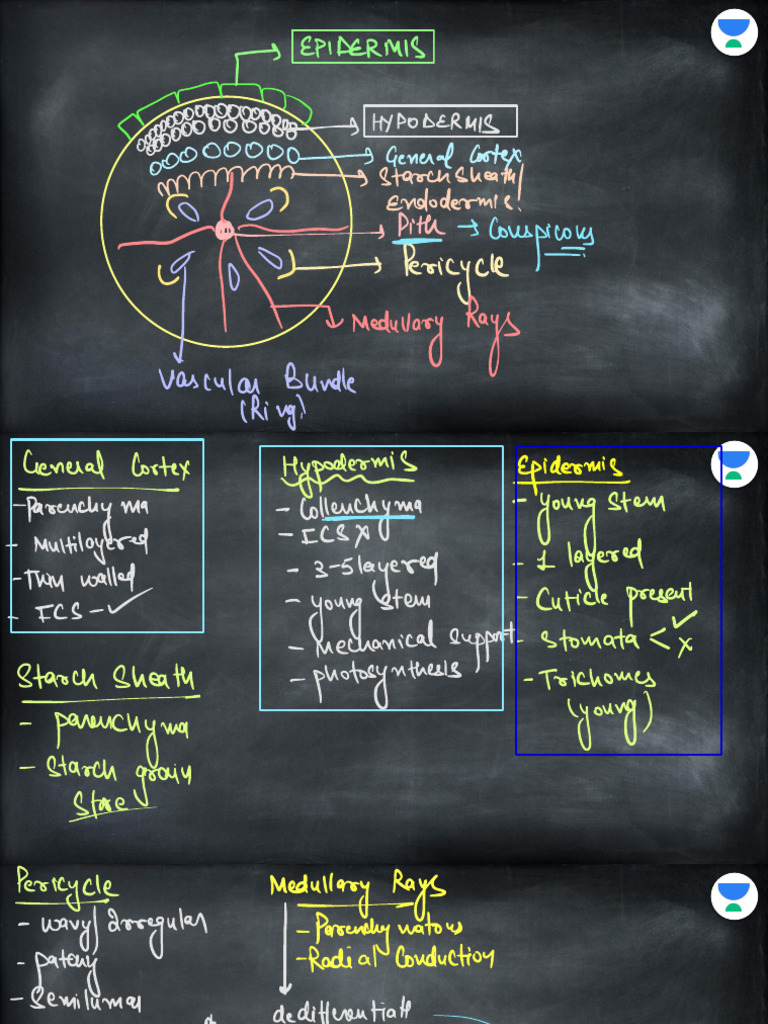 EPIDERMIS
HYPODERMIS
General Cortex
Starch Sheath/
Endodermis.
Pith → Conspicous
Pericycle
Medullary Rays
Vascular Bundle
(Ring)
General Cortex
- Parenchyma
- Multilayered
- Thin walled
- ICS - ✓
Starch Sheath
- parenchyma
- Starch grain
Store
Hypodermis
- Collenchyma
- ICS X
- 3-5 layered
- young stem
- Mechanical support
- photosynthesis
Epidermis
- Young stem
- 1 layered
- Cuticle present
- Stomata < ✓ x
- Trichomes
(young)
Pericycle
- wavy/Irregular
- patchy
- Semilunar
Medullary Rays
- Parenchymatous
- Radial Conduction